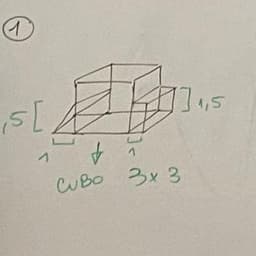 1
,5 [ ] 1,5
1 1
CUBO 3x3